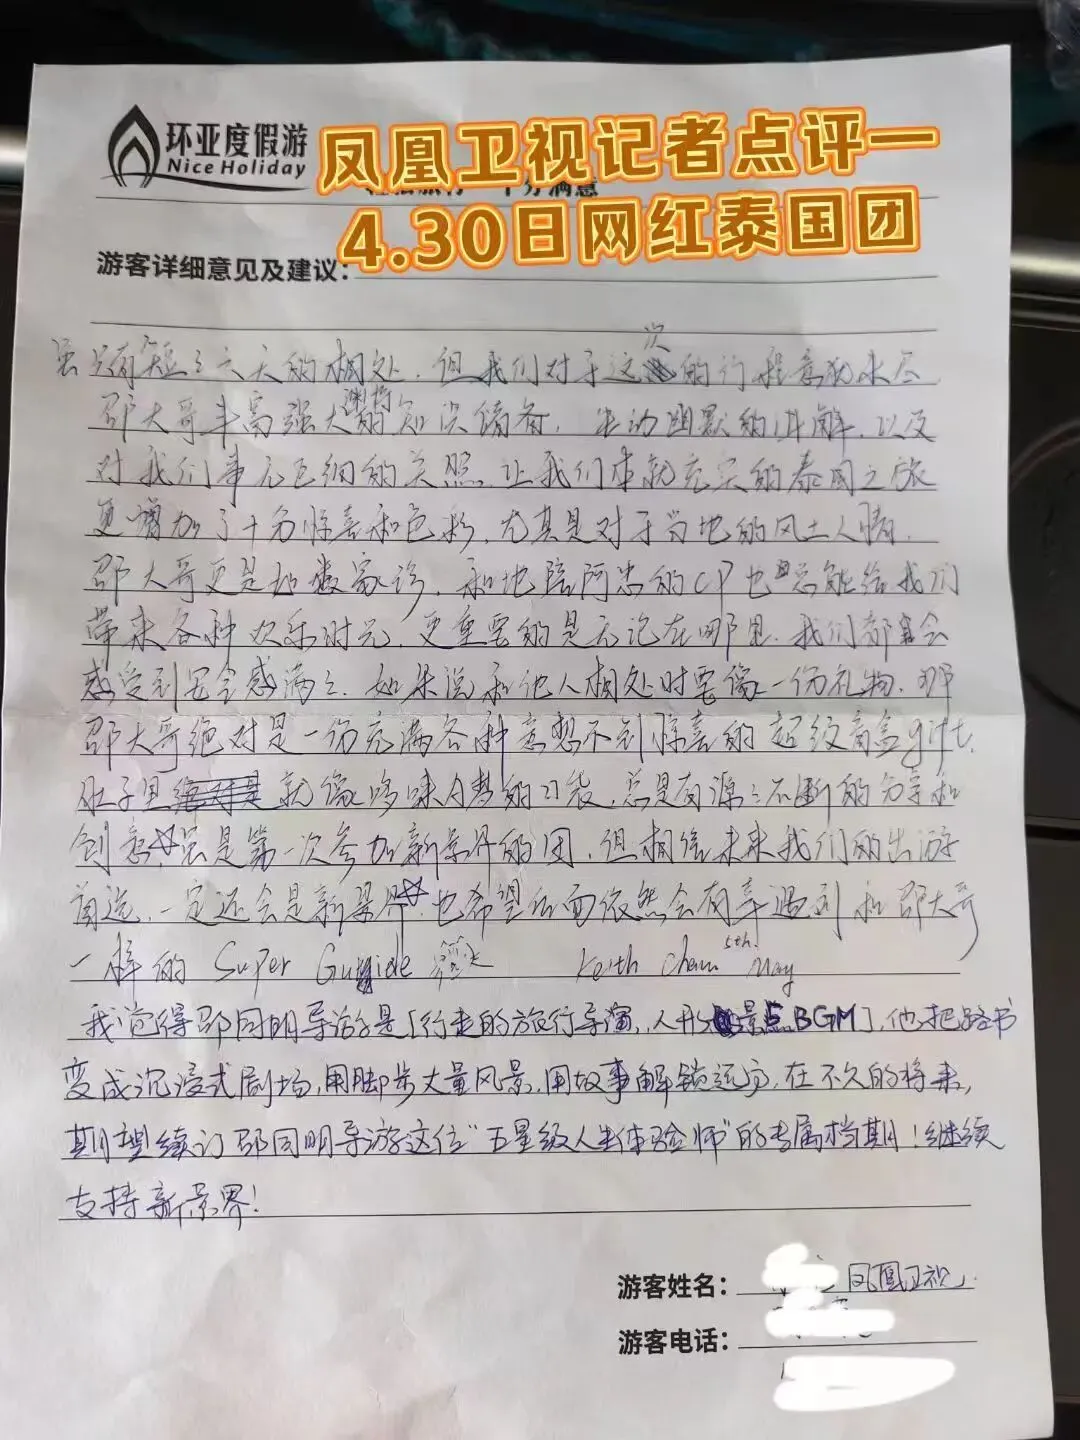 环亚度假游
Nice Holiday
凤凰卫视记者点评一
4.30日网红泰国团
十分满意
游客详细意见及建议：
虽只有短短六天的相处，但我们对于这次的行程意犹未尽
邵大哥丰富强大的渊博知识储备，生动幽默的讲解，以及
对我们事无巨细的关照，让我们本就充实的泰国之旅
更增加了十分惊喜和色彩，尤其是对于当地的风土人情，
邵大哥更是如数家珍，和地陪阿忠的CP也总能给我们
带来各种欢乐时光，更重要的是无论在哪里，我们都会
感受到安全感满满，如果说和他人相处时要像一份礼物，那
邵大哥绝对是一份充满各种意想不到惊喜的超级盲盒gift，
肚子里就像哆啦A梦的口袋，总是有源源不断的分享和
创意，虽是第一次参加新景界的团，但相信未来我们的出游
首选，一定还会是新景界，也希望后面依然会有幸遇到和邵大哥
一样的 Super Guide Keith Cham 5th May
我觉得邵同明导游是[行走的旅行导演，人形景点BGM]，他把路书
变成沉浸式剧场，用脚步丈量风景，用故事解锁远方，在不久的将来，
期望续订邵同明导游这位“五星级人生体验师”的专属档期！继续
支持新景界！
游客姓名： 凤凰卫视
游客电话：